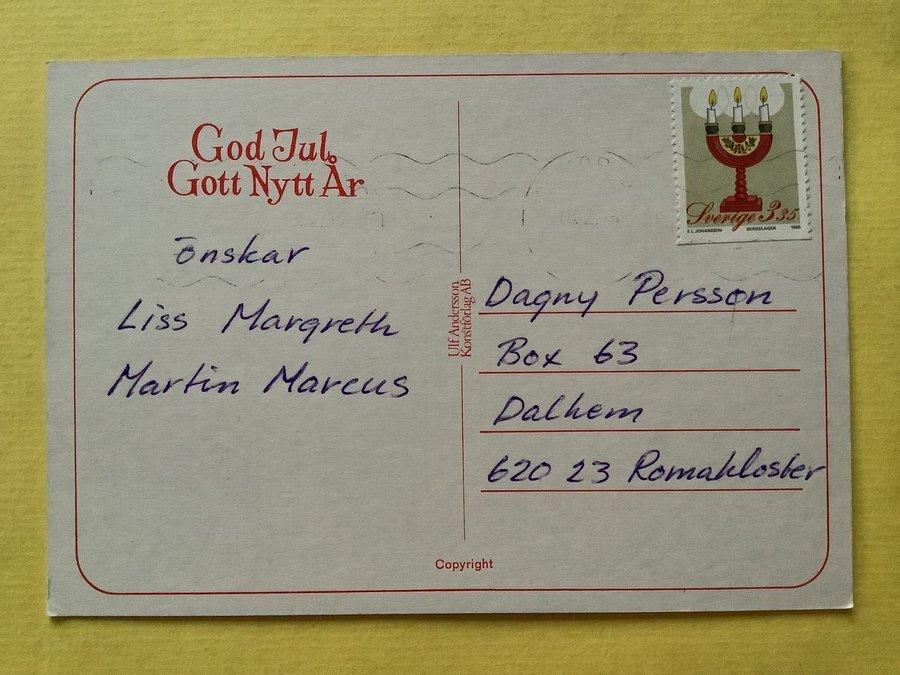 God Jul
Gott Nytt År
önskar
Liss Margreth
Martin Marcus
Ulf Andersson
Konstförlag AB
Sverige 3 35
E.L JOHANSSON BERGSLAGEN
Dagny Persson
Box 63
Dalhem
620 23 Romakloster
Copyright